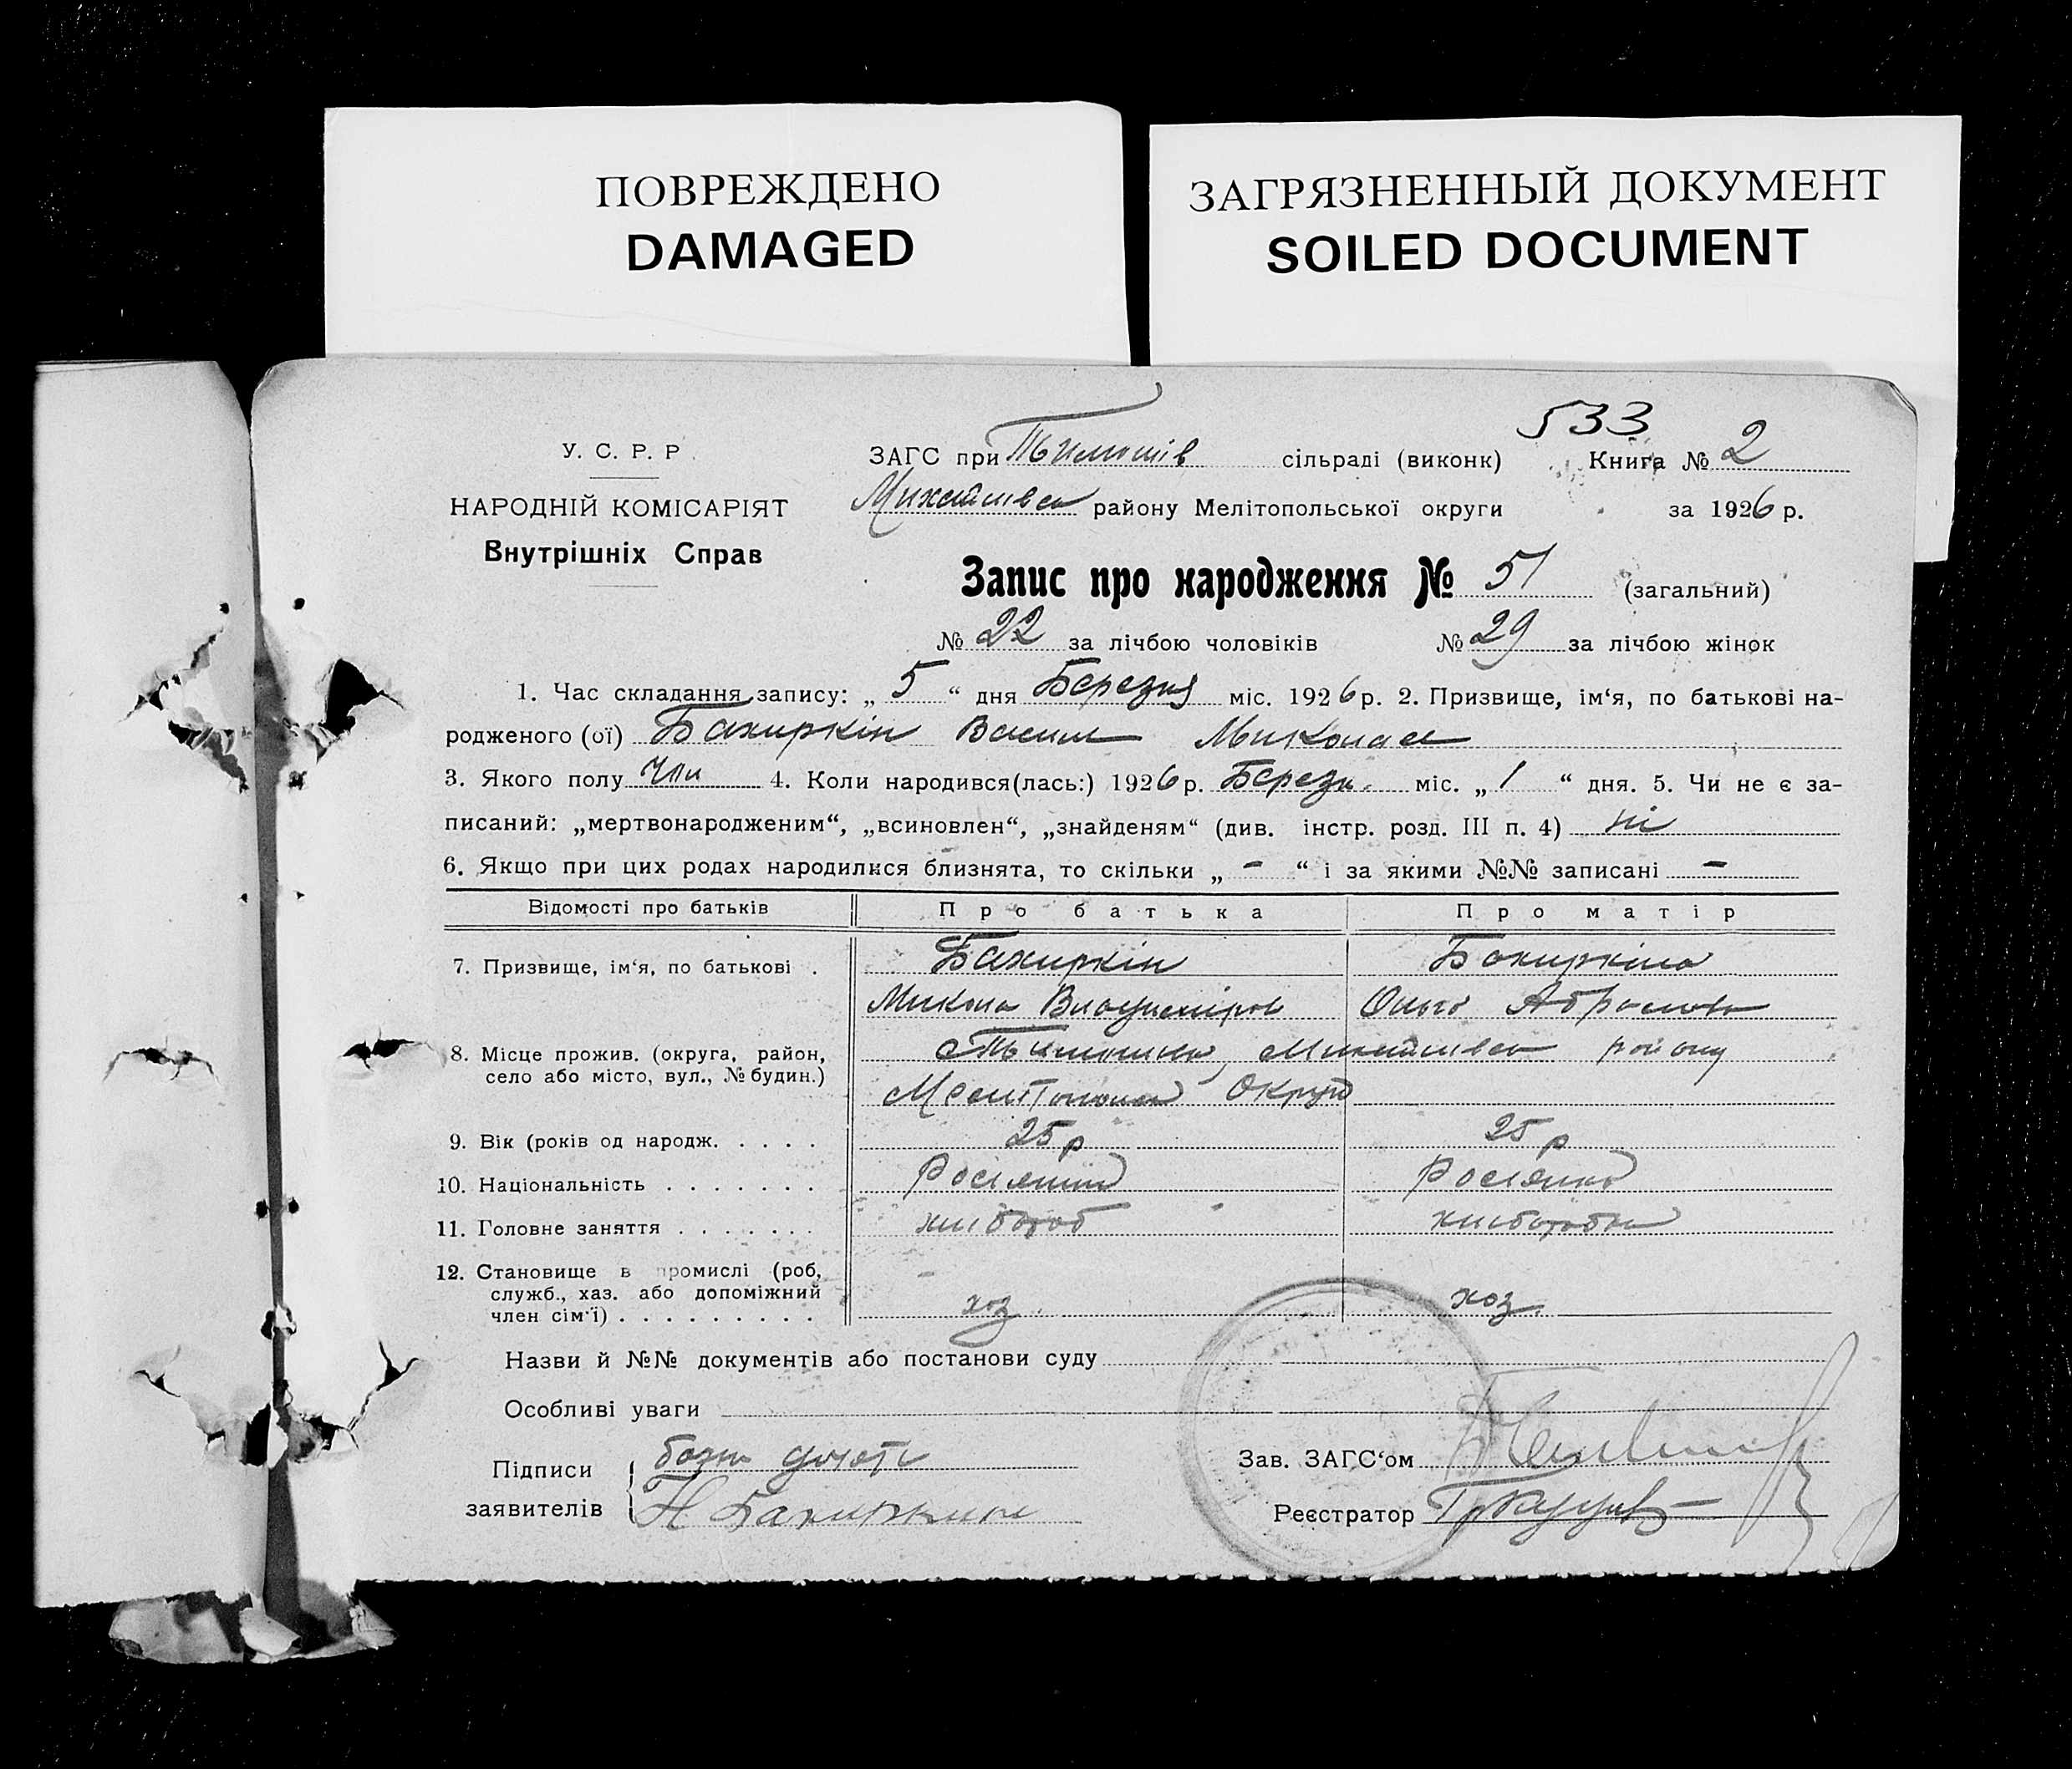 ПОВРЕЖДЕНО
DAMAGED
ЗАГРЯЗНЕННЫЙ ДОКУМЕНТ
SOILED DOCUMENT
533
У. С. Р. Р.
НАРОДНІЙ КОМІСАРІЯТ
Внутрішніх Справ
ЗАГС при сільраді (виконк) Книга № 2
району Мелітопольської округи за 1926 р.
Запис про народження № 51 (загальний)
№ 22 за лічбою чоловіків № 29 за лічбою жінок
1. Час складання запису: „ 5 “ дня Березня міс. 1926 р. 2. Призвище, ім‘я, по батькові на-
родженого (ої) Бакиркін Васил
3. Якого полу Чли 4. Коли народився(лась:) 1926 р. Березн. міс. „ 1 “ дня. 5. Чи не є за-
писаний: „мертвонародженим“, „всиновлен“, „знайденям“ (див. інстр. розд. III п. 4) ні
6. Якщо при цих родах народилися близнята, то скільки „ - “ і за якими №№ записані -
Відомості про батьків Про батька Про матір
7. Призвище, ім‘я, по батькові . Бакиркін Бакиркіна
Микола Владиміров Ольга
8. Місце прожив. (округа, район,
село або місто, вул., № будин.) району
Округ
9. Вік (років од народж. . . . . 25 р 25 р
10. Національність . . . . . . . Росіянин Росіянка
11. Головне заняття . . . . . . . хлібороб
12. Становище в промислі (роб,
служб., хаз. або допоміжний
член сім‘ї) . . . . . . . . . хоз. хоз.
Назви й №№ документів або постанови суду
Особливі уваги
Підписи
заявителів Н Бакиркин
Зав. ЗАГС‘ом
Реєстратор